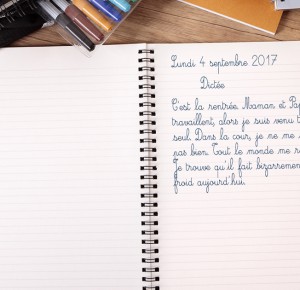 Lundi 4 septembre 2017
Dictée
C'est la rentrée. Maman et Pa
travaillent, alors je suis venu t
seul. Dans la cour, je ne me s
pas bien. Tout le monde me r
Je trouve qu'il fait bizarremen
froid aujourd'hui.